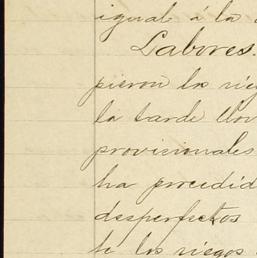 igual á la
Labores.
pieron los rieg
la tarde llov
provicionales
ha procedid
desperfectos
te los riegos